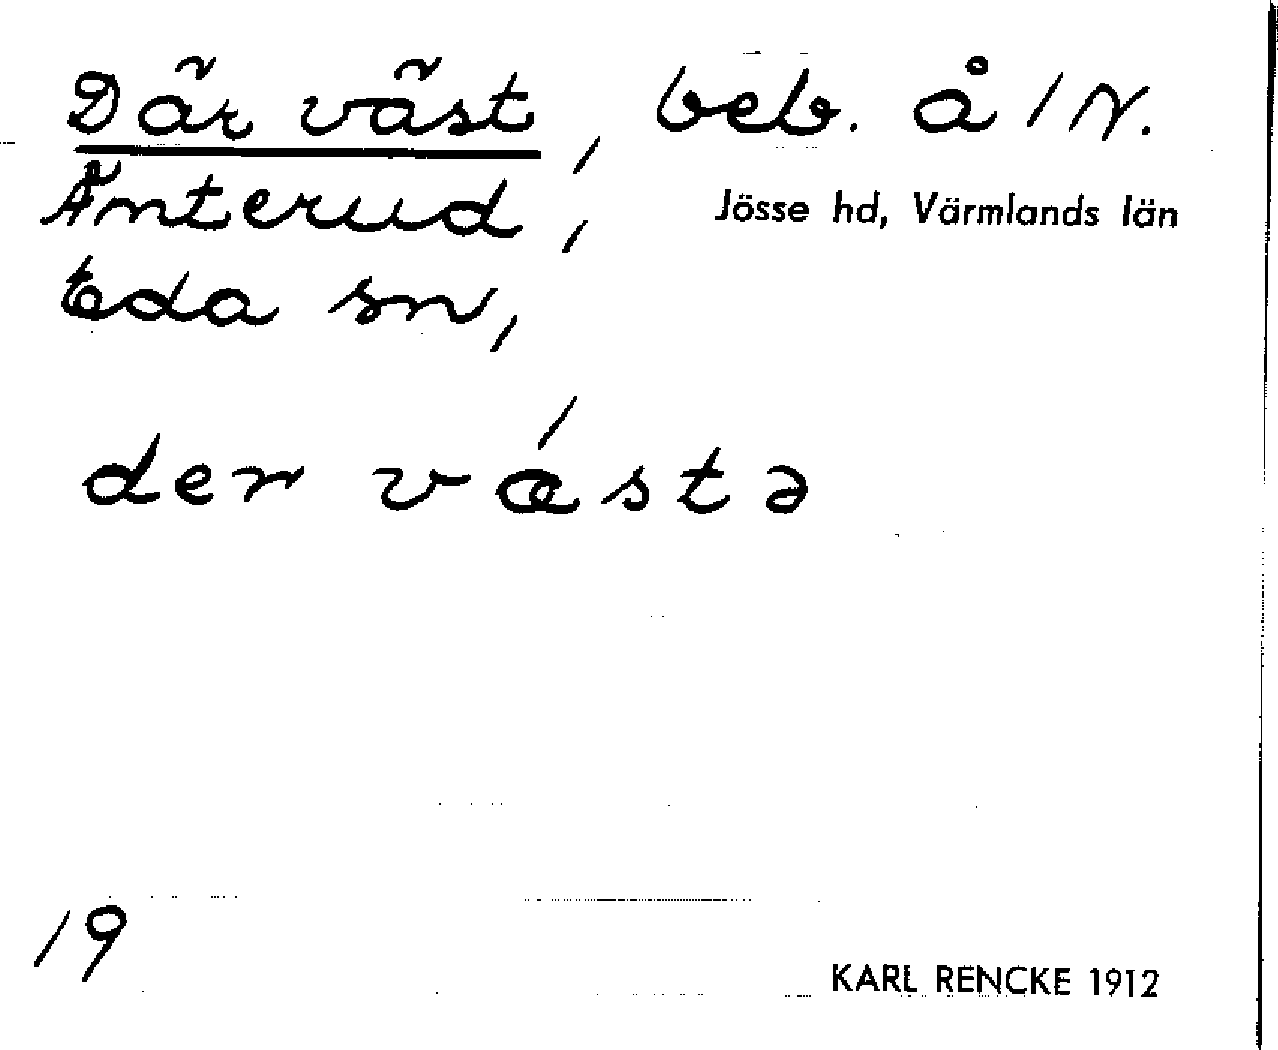 Där väst, beb. å /N.
Änterud, Jösse hd, Värmlands län
Eda sn,
der vǽstə
19
KARL RENCKE 1912